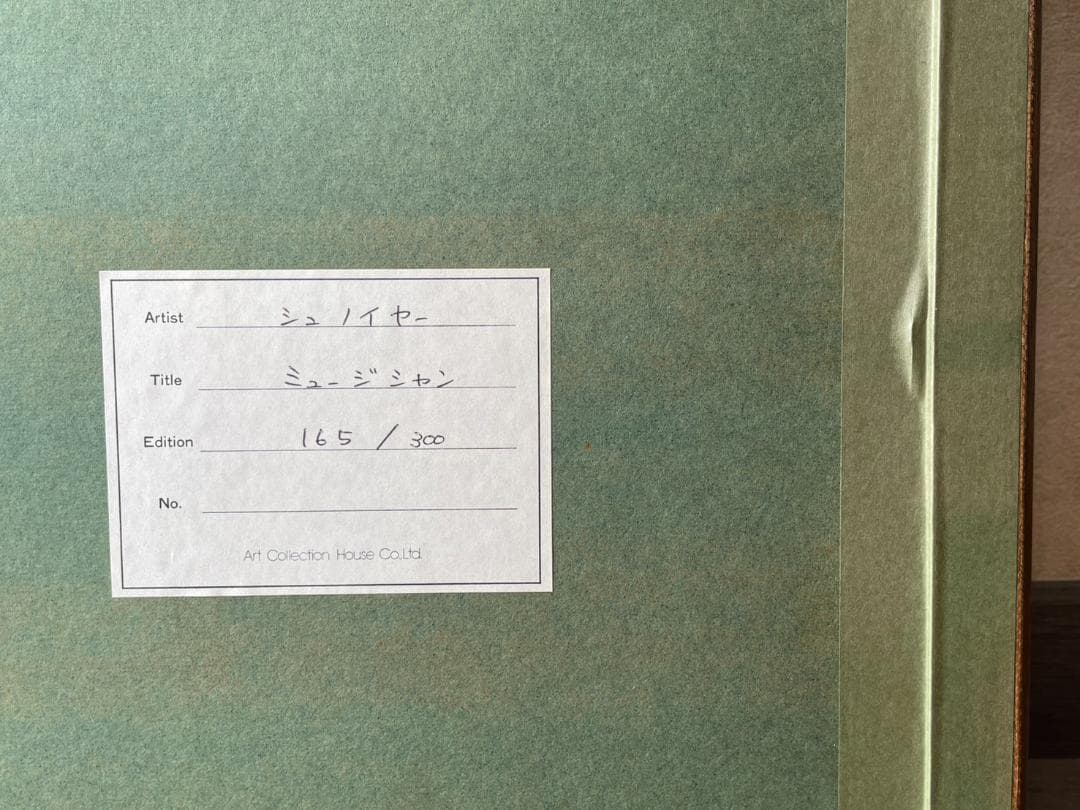 Artist シュノイヤー
Title ミュージシャン
Edition 165 / 300
No.
Art Collection House Co.,Ltd.